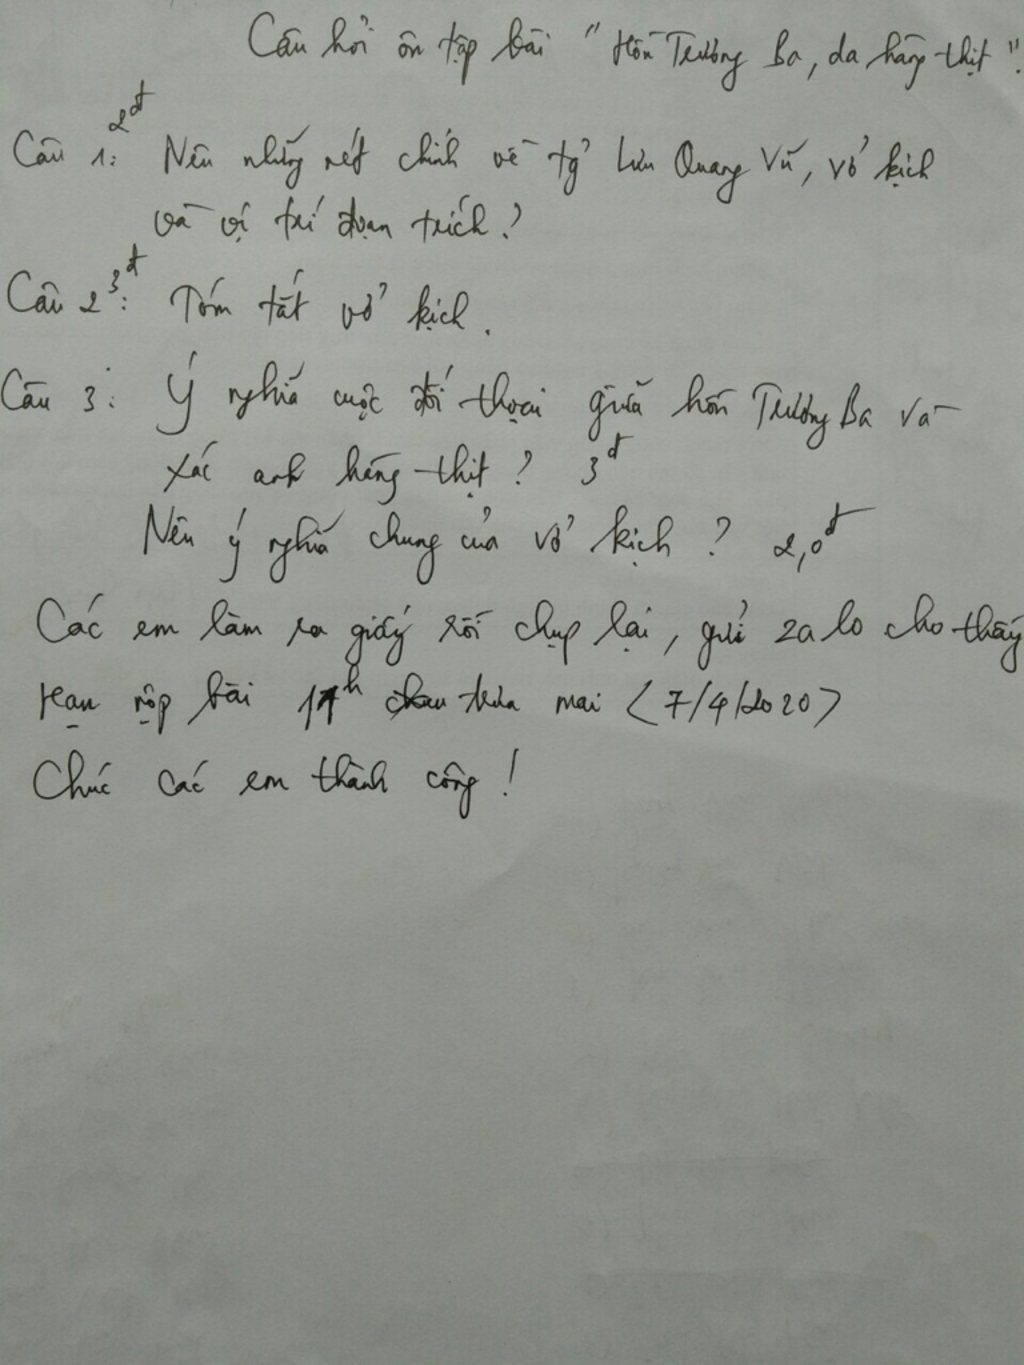 Câu hỏi ôn tập bài "Hồn Trương Ba, da hàng thịt".
Câu 1: 2đ Nêu những nét chính về tg Lưu Quang Vũ, vở kịch
và vị trí đoạn trích?
Câu 2: 3đ Tóm tắt vở kịch.
Câu 3: Ý nghĩa cuộc đối thoại giữa hồn Trương Ba và
xác anh hàng thịt? 3đ
Nêu ý nghĩa chung của vở kịch? 2,0đ
Các em làm ra giấy rồi chụp lại, gửi zalo cho thầy
Hạn nộp bài 11h trưa mai (7/4/2020)
Chúc các em thành công!